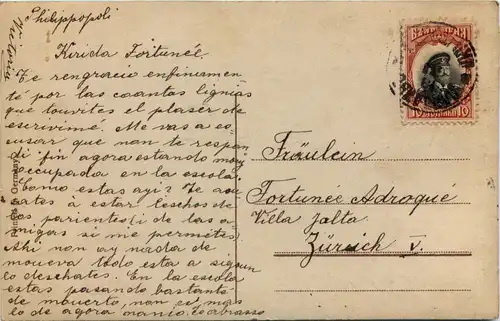 Philippopoli
Victoria
Kirida Fortunée.
Te rengracio enfinamen-
té por las cuantas lignias
que touvites el plaser de
escrivirme. Me vas a es-
cusar que non te respon-
di fin agora estando muy
occupada en la escola.
Como estas ayi? Te
a estar leschos de
los parientes (i de las a-
migas si me permetes
Ahi non ay nada de
mouevo todo esta a sigun
lo deschates. En la escola
estas pasando bastante
de mouerto, non es mas
lo de agora
Te abrasso
Printed in Germany
БЪЛГАРИЯ
10 СТОТИНКИ 10
Fräulein
Fortunée Adroqué
Villa Jalta.
Zürich V.